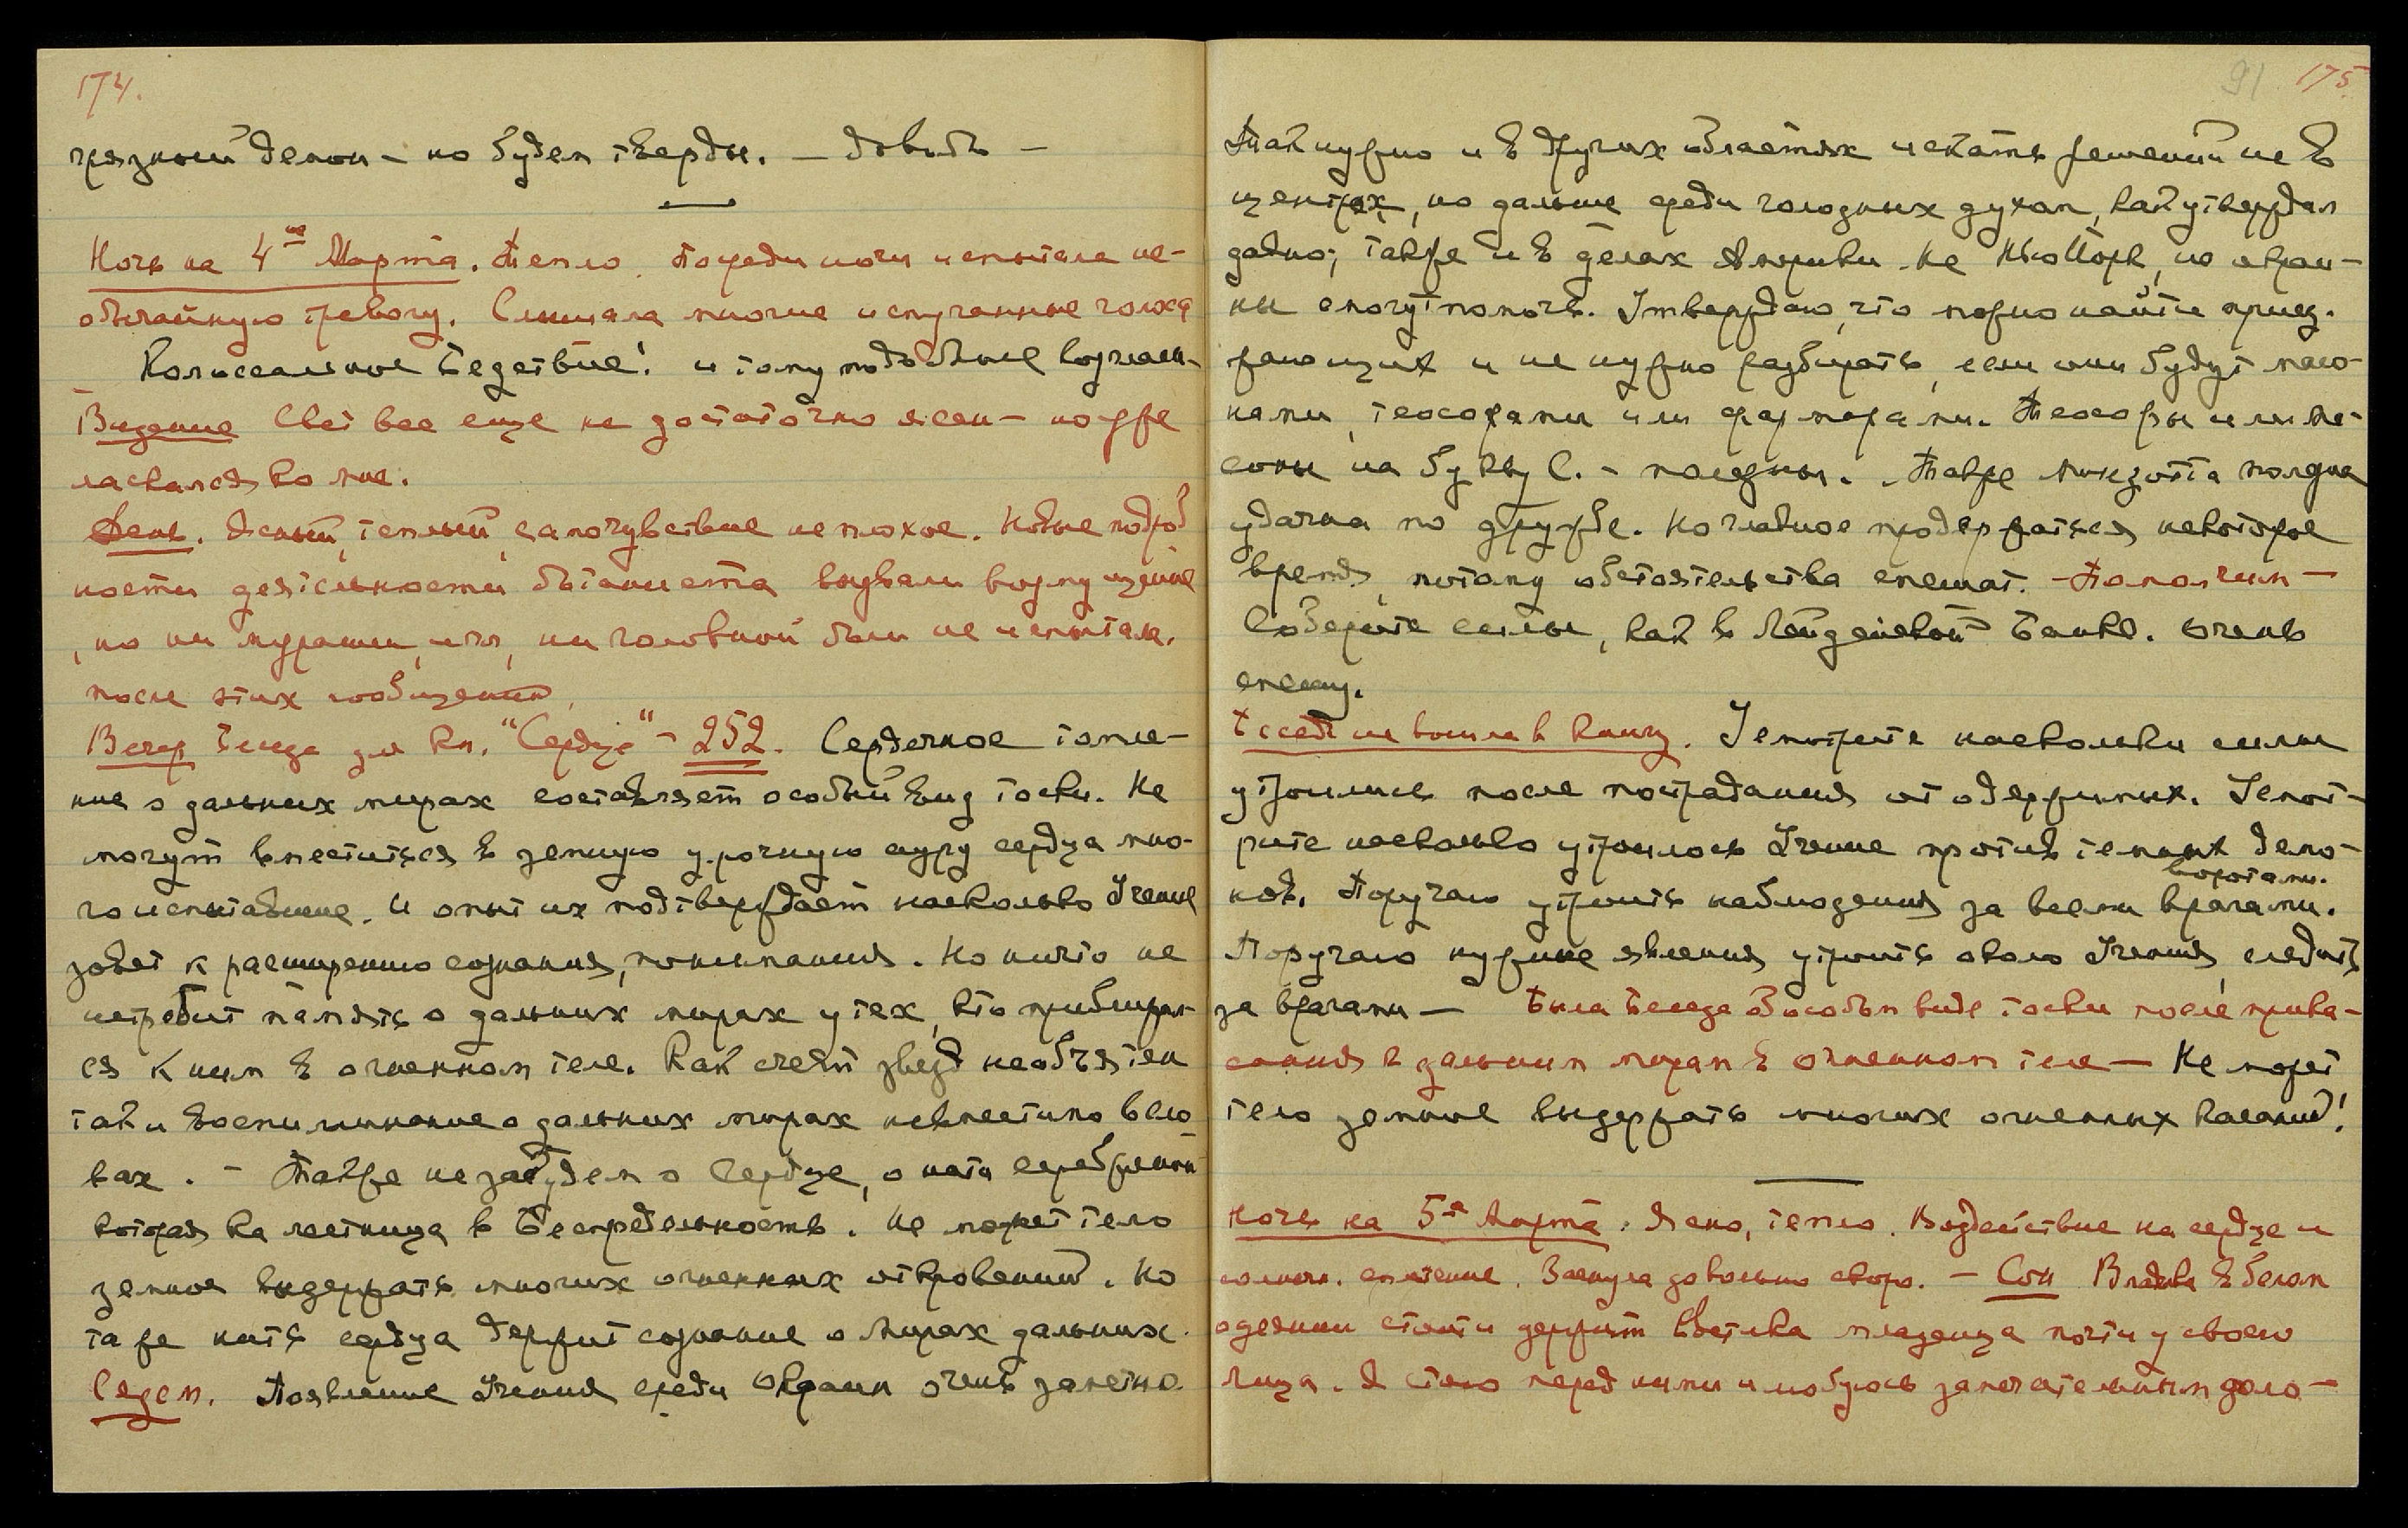 174.
грязный демон – но будем тверды. – довольно –
Ночь на 4ое Марта. Тепло. Посреди ночи испытала не-
обычайную тревогу. Слышала многие испуганные голоса
Колоссальное Бедствие! и тому подобные возгласы.
Видение Свет все еще не достаточно ясен – но уже
ласкался ко мне.
День. Ясный, теплый, самочувствие не плохое. Новые подроб
ности деятельности ботаниста вызвали возмущение
, но ни мурашки, ни головной боли не испытала.
после этих сообщений.
Вечер Беседа для кн. "Сердце" – 252. Сердечное томле-
ние о дальних мирах составляет особый вид тоски. Не
могут вместиться в земную урочную ауру сердца мно-
го испытавшие. И опыт их подтверждает насколько Учение
зовет к расширению сознания, понимания. Но ничто не
истребит память о дальних мирах у тех, кто приближал-
ся к ним в огненном теле. Как счет звезд необъятен
так и воспоминание о дальних мирах невместимо в сло-
вах. – Также не забудем о Сердце, о нити серебряной
которая ка лестница в Беспредельность. Не может тело
земное выдержать многих огненных откровений. Но
та же нить сердца держит сознание о Мирах дальних.
Садем. Появление Учения среди окраин очень заметно
91 175.
Так нужно и в других областях искать решений не в
центрах, но дальше среди голодных духом, как утверждал
давно; также и в делах Америки не НьюЙорк, но окраи-
ны смогут помочь. Утверждаю, что можно найти приез-
жающих и не нужно разбирать, если они будут масо-
нами, теософами или фармерами. Теософы или ма-
соны на букву С. – полезны. Также
удачна по дружбе. Но главное продержаться некоторое
время, потому обстоятельства спешат. – Помолчим –
Соберите силы, как в Лейденской Банке. Очень
спешу.
Беседа не вошла в книгу. Усмотрите насколько силы
утроились после пострадания от одержимых. Усмот-
рите насколько утроилось Учение против темных демо-
воротами.
нов. Поручаю утроить наблюдения за всеми врагами.
Поручаю нужные явления утроить около Учения, следить
за врагами – Была Беседа об особом виде тоски после прика-
сания к дальним мирам в огненном теле – Не может
тело земное выдержать многих огненных касаний!
Ночь на 5ое Марта. Ясно, тепло. Воздействие на сердце и
солнечн. сплетение. Заснула довольно скоро. – Сон Владыка в белом
одеянии стоит и держит младенца почти у своего
лица. Я стою перед ними и любуюсь замечательным